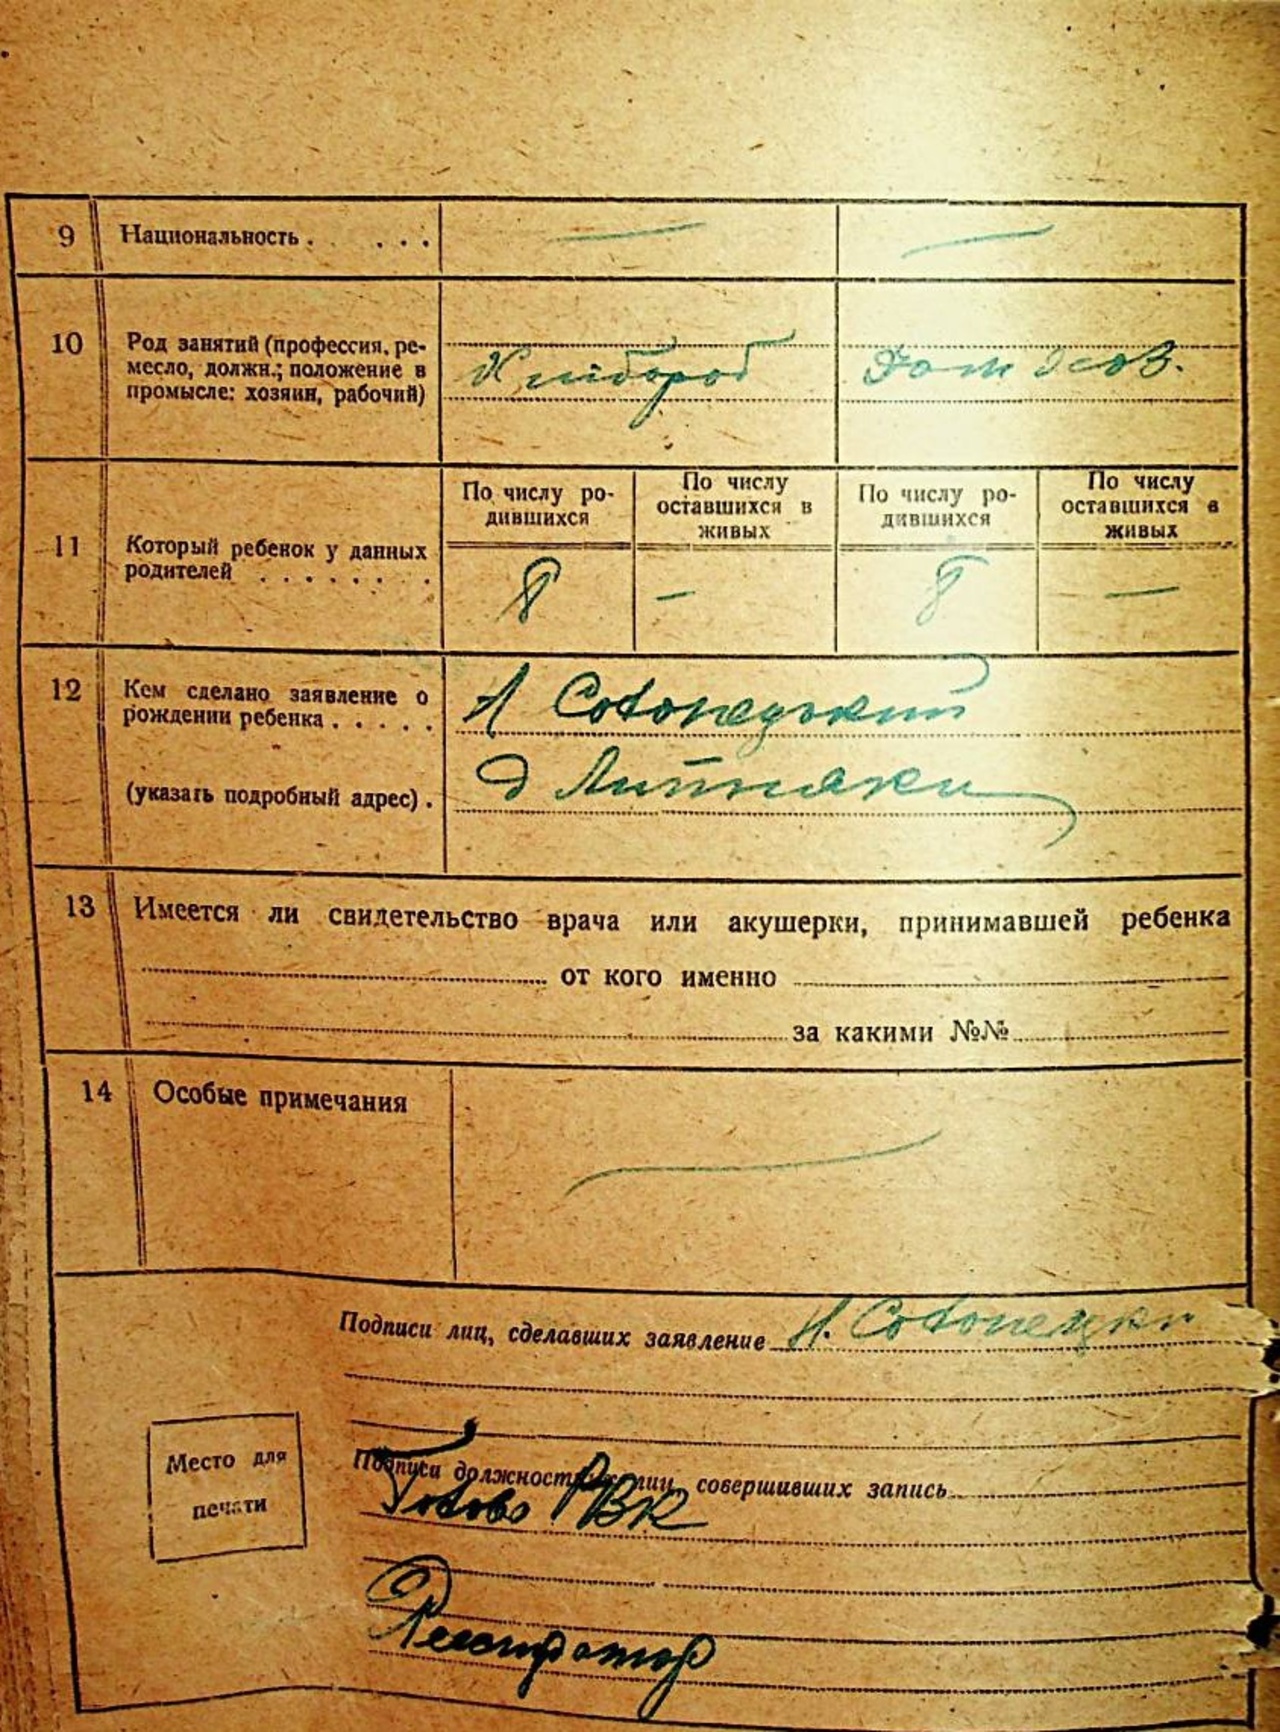 9 Национальность . . . . .
— —
10 Род занятий (профессия, ре-
месло, должн.; положение в
промысле: хозяин, рабочий)
Хлібороб
Дом
По числу ро-
дившихся
По числу
оставшихся в
живых
По числу ро-
дившихся
По числу
оставшихся в
живых
11 Который ребенок у данных
родителей . . . . . . .
8 — 8 —
12 Кем сделано заявление о
рождении ребенка . . . . .
(указать подробный адрес) .
д Липняки
13 Имеется ли свидетельство врача или акушерки, принимавшей ребенка
от кого именно
за какими №№
14 Особые примечания
—
Подписи лиц, сделавших заявление
Место для
печати
Подписи должностных лиц, совершивших запись
Голова РВК
Реєстратор